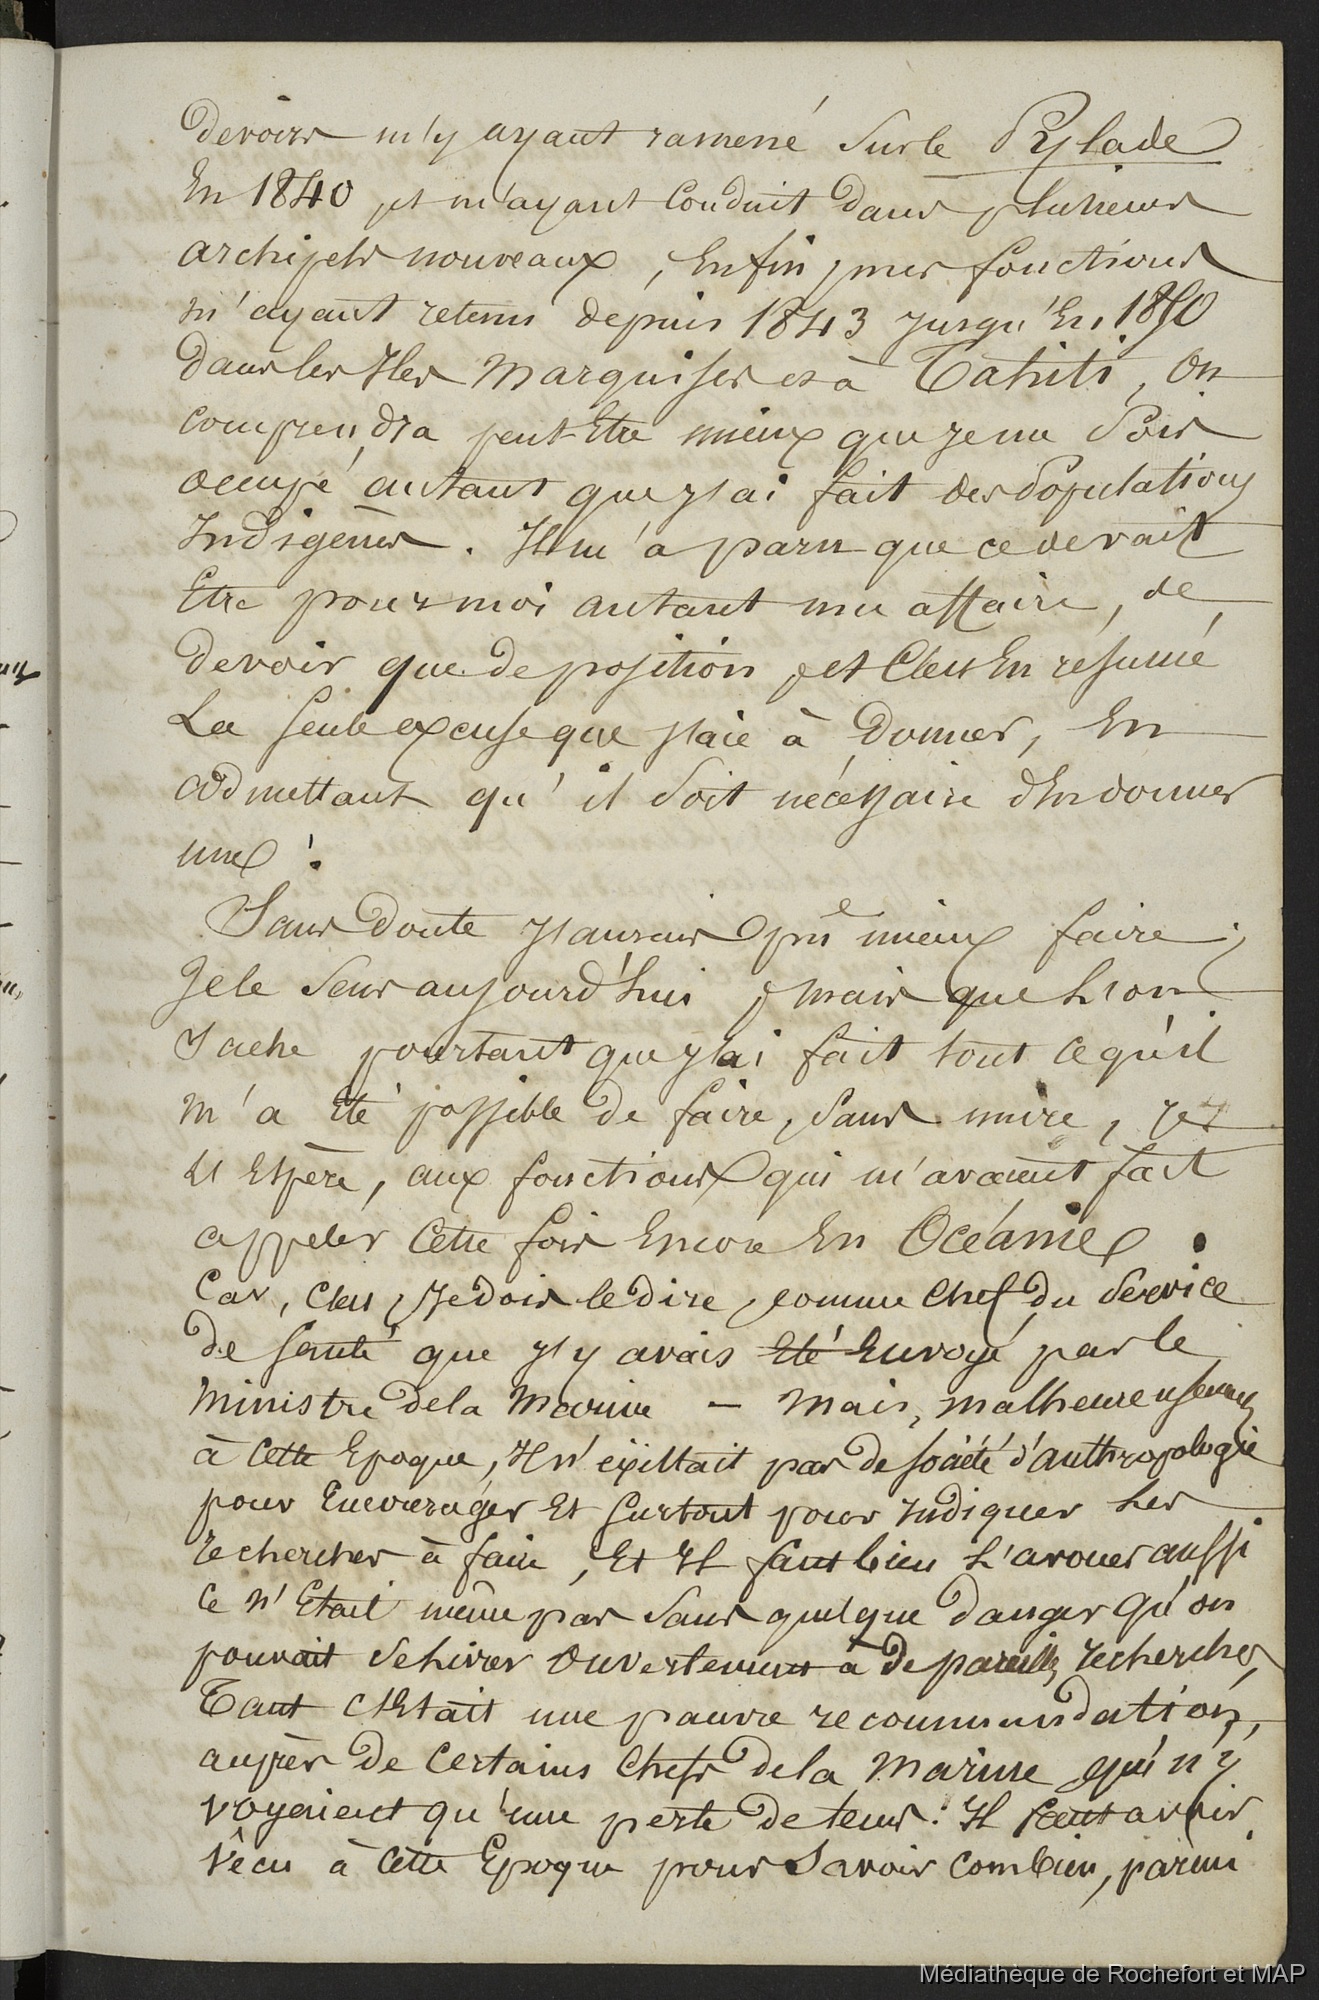 devoirs m'y ayant ramené sur le Pylade
En 1840 et m'ayant conduit dans plusieurs
archipels nouveaux, Enfin, mes fonctions
m'ayant retenu depuis 1843 jusqu'En 1850
dans les Iles Marquises et à Tahiti, On
comprendra peut Etre mieux que je me sois
occupé autant que j'ai fait des Populations
Indigènes. Il m'a paru que ce devait
Etre pour moi autant une affaire, de
devoir que de position, et C'est En résumé
La seule excuse que j'aie à donner, En
admettant qu'il soit nécessaire d'En donner
une !
Sans doute j'aurais pu mieux faire ;
Je le sens aujourd'hui, mais que L'on
Sache pourtant que j'ai fait tout ce qu'il
m'a Eté possible de faire, sans nuire, je
L'Espère, aux fonctions qui m'avaient fait
appeler Cette fois Encore En Océanie.
Car, C'est, Je dois le dire, comme Chef du Service
de santé que j'y avais Eté Envoyé par le
Ministre de la Marine — Mais, malheureusement
à Cette Epoque, Il n'existait pas de société d'anthropologie
pour Encourager Et surtout pour Indiquer Les
recherches à faire, Et Il faut bien L'avouer aussi
Ce n'Etait même pas sans quelque danger qu'on
pouvait se livrer Ouvertement à de pareilles recherches,
Tant C'Etait une pauvre recommandation,
auprès de Certains Chefs de la Marine qui n'y
voyaient qu'une perte de tems. Il faut avoir
vécu à Cette Epoque pour Savoir Combien, parmi
Médiathèque de Rochefort et MAP